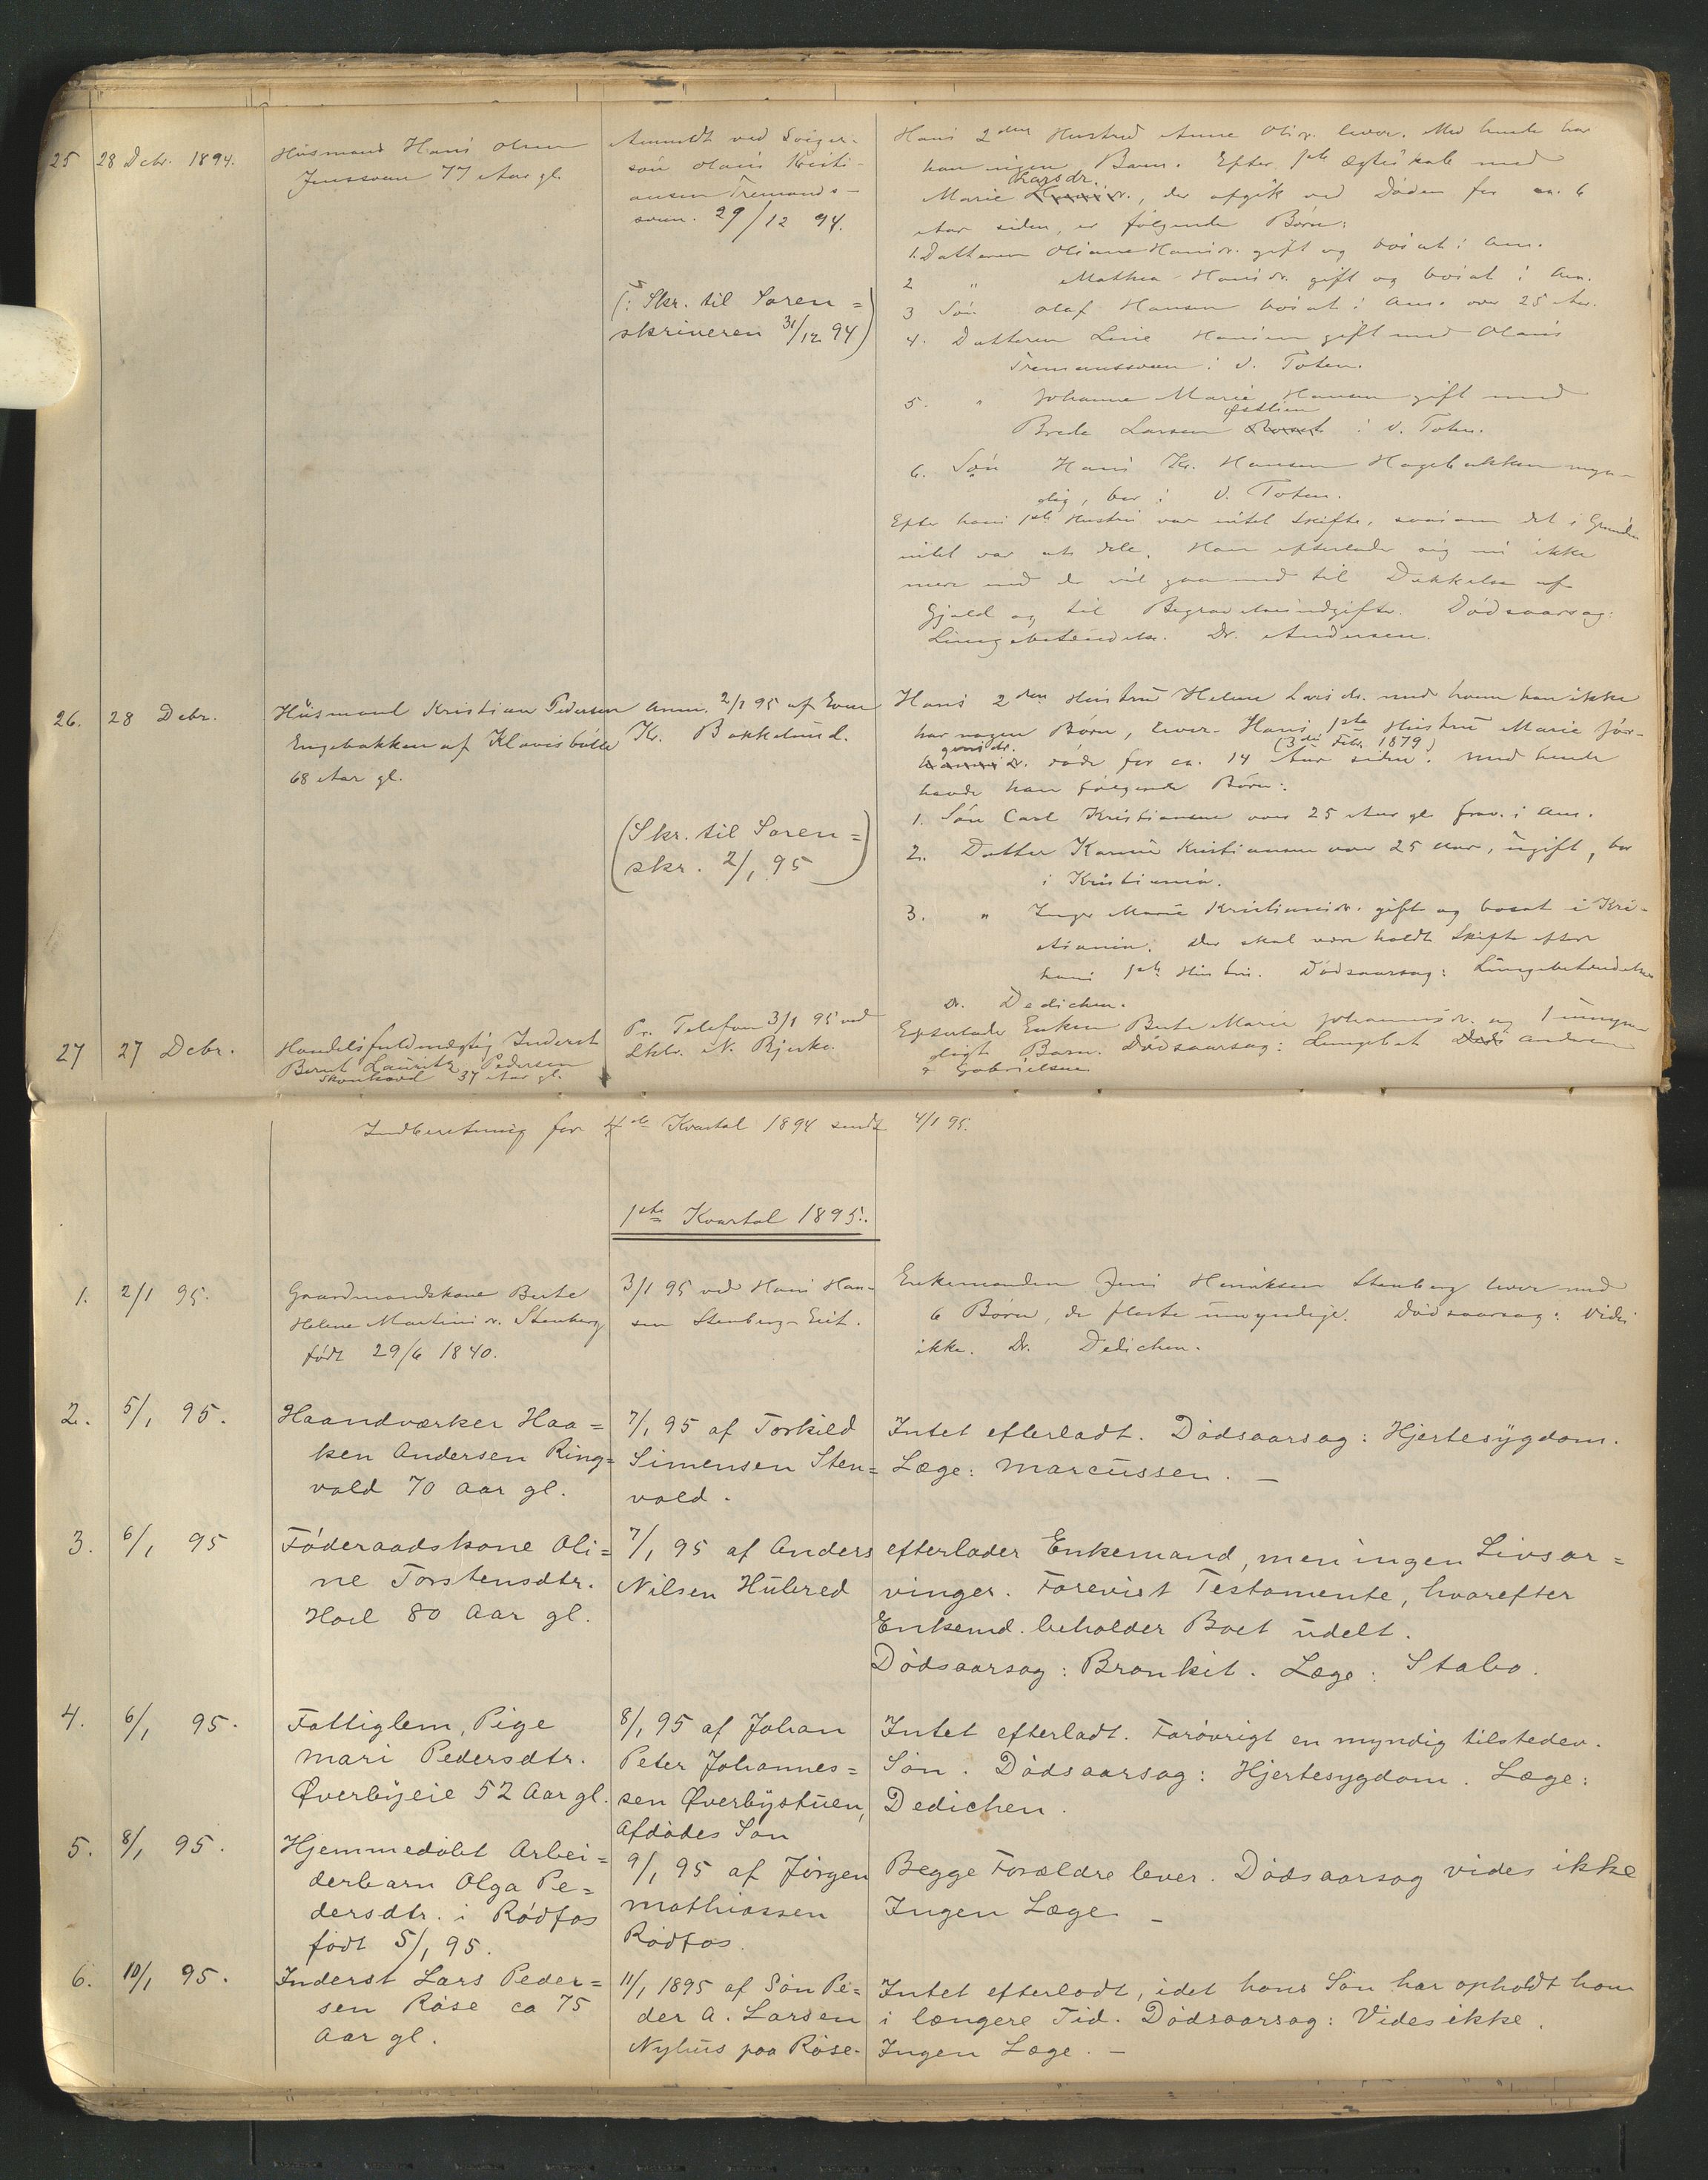 25 28 Debr. 1894. Husmand Hans Olsen
Jenssveen 77 Aar gl.
Anmeldt ved Sviger-
søn Olaus Kristi-
ansen Tremands-
sveen. 29/12 94.
(: Skr. til Soren=
skriveren 31/12 94)
Hans 2den Hustru Anne Olsdr. lever. Med hende har
han ingen Barn. Efter 1ste Ægteskab med
Marie Larsdr., der afgik ved Døden for ca. 6
Aar siden, er følgende Børn:
1. Datteren Oliane Hansdr. gift og bosat i Am.
2 " Mathea Hansdr. gift og bosat i Am.
3 Søn Olaf Hansen bosat i Am. over 25 Aar.
4. Datteren Line Hansen gift med Olaus
Tremandssveen i V. Toten.
5. " Johanne Marie Hansen gift med
Brede Larsen Østlien i V. Toten.
6. Søn Hans Kr. Hansen Hagebakken myn-
dig, bor i V. Toten.
Efter hans 1ste Hustru var intet Skifte, saasom det i Grunden
intet var at dele. Han efterlader sig nu ikke
mere end der vil gaa med til Dækkelse af
Gjæld og til Begravelsesudgifter. Dødsaarsag:
Lungebetændelse. Dr. Andersen.
26. 28 Debr. Husmand Kristian Pedersen
Engebakken af Klovisbølle
68 Aar gl.
Anm. 2/1 95 af Even
Kr. Bakkelund.
(Skr. til Soren=
skr. 2/1 95)
Hans 2den Hustru Helene Larsdr. med hvem han ikke
har nogen Børn, lever. Hans 1ste Hustru Marie Jør-
gensdr. døde for ca. 14 Aar siden (3die Febr. 1879). Med hende
havde han følgende Børn:
1. Søn Carl Kristiansen over 25 Aar gl. frav. i Am.
2. Datter Karine Kristiansen over 25 Aar, ugift, bor
i Kristiania.
3. " Inger Marie Kristiansdr. gift og bosat i Kri-
stiania. Der skal være holdt Skifte efter
hans 1ste Hustru. Dødsaarsag: Lungebetændelse
Dr. Dedichen.
27 27 Debr. Handelsfuldmægtig Inderst
Bernt Lauritz Pedersen
37 Aar gl.
Pr. Telefon 3/1 95 ved
N. Bjerke.
Efterlader Enken Berte Marie Johannesdr. og 1 umyn-
digt Barn. Dødsaarsag: Lungebet. Andersen
& Gabrielsen
Indberetning for 4de Kvartal 1894 sendt 4/1 95.
1ste Kvartal 1895.
1. 2/1 95. Gaardmandskone Berte
Helene Martinsdr. Stenberg
født 29/6 1840.
3/1 95 ved Hans Han-
sen Stenberg-Eiet.
Enkemanden Jens Henriksen Stenberg lever med
6 Børn, de fleste umyndige. Dødsaarsag: Vides
ikke. Dr. Dedichen.
2. 5/1 95. Haandværker Haa=
ken Andersen Ring=
vold 70 Aar gl.
7/1 95 af Torkild
Simensen Sten=
vold.
Intet efterladt. Dødsaarsag: Hjertesygdom.
Læge: Marcussen. —
3. 6/1 95 Føderaadskone Oli=
ne Torstensdtr.
Hoel 80 Aar gl.
7/1 95 af Anders
Nilsen Hubred
efterlader Enkemand, men ingen Livsar=
vinger. Forevist Testamente, hvorefter
Enkemd. beholder Boet udelt.
Dødsaarsag: Bronkit. Læge: Stabo.
4. 6/1 95. Fattiglem, Pige
Mari Pedersdtr.
Øverbyeie 52 Aar gl.
8/1 95 af Johan
Peter Johannes=
sen Øverbystuen,
Afdødes Søn
Intet efterladt. Forøvrigt en myndig tilstedev.
Søn. Dødsaarsag: Hjertesygdom. Læge:
Dedichen.
5. 8/1 95. Hjemmedøbt Arbei=
derbarn Olga Pe=
dersdtr. i Rødfos
født 5/1 95.
9/1 95 af Jørgen
Mathiassen
Rødfos.
Begge Forældre lever. Dødsaarsag vides ikke
Ingen Læge. —
6. 10/1 95. Inderst Lars Peder=
sen Røse ca 75
Aar gl.
11/1 1895 af Søn Pe=
der A. Larsen
Nyhus paa Røse.
Intet efterladt, idet hans Søn har opholdt ham
i længere Tid. Dødsaarsag: Vides ikke.
Ingen Læge. —